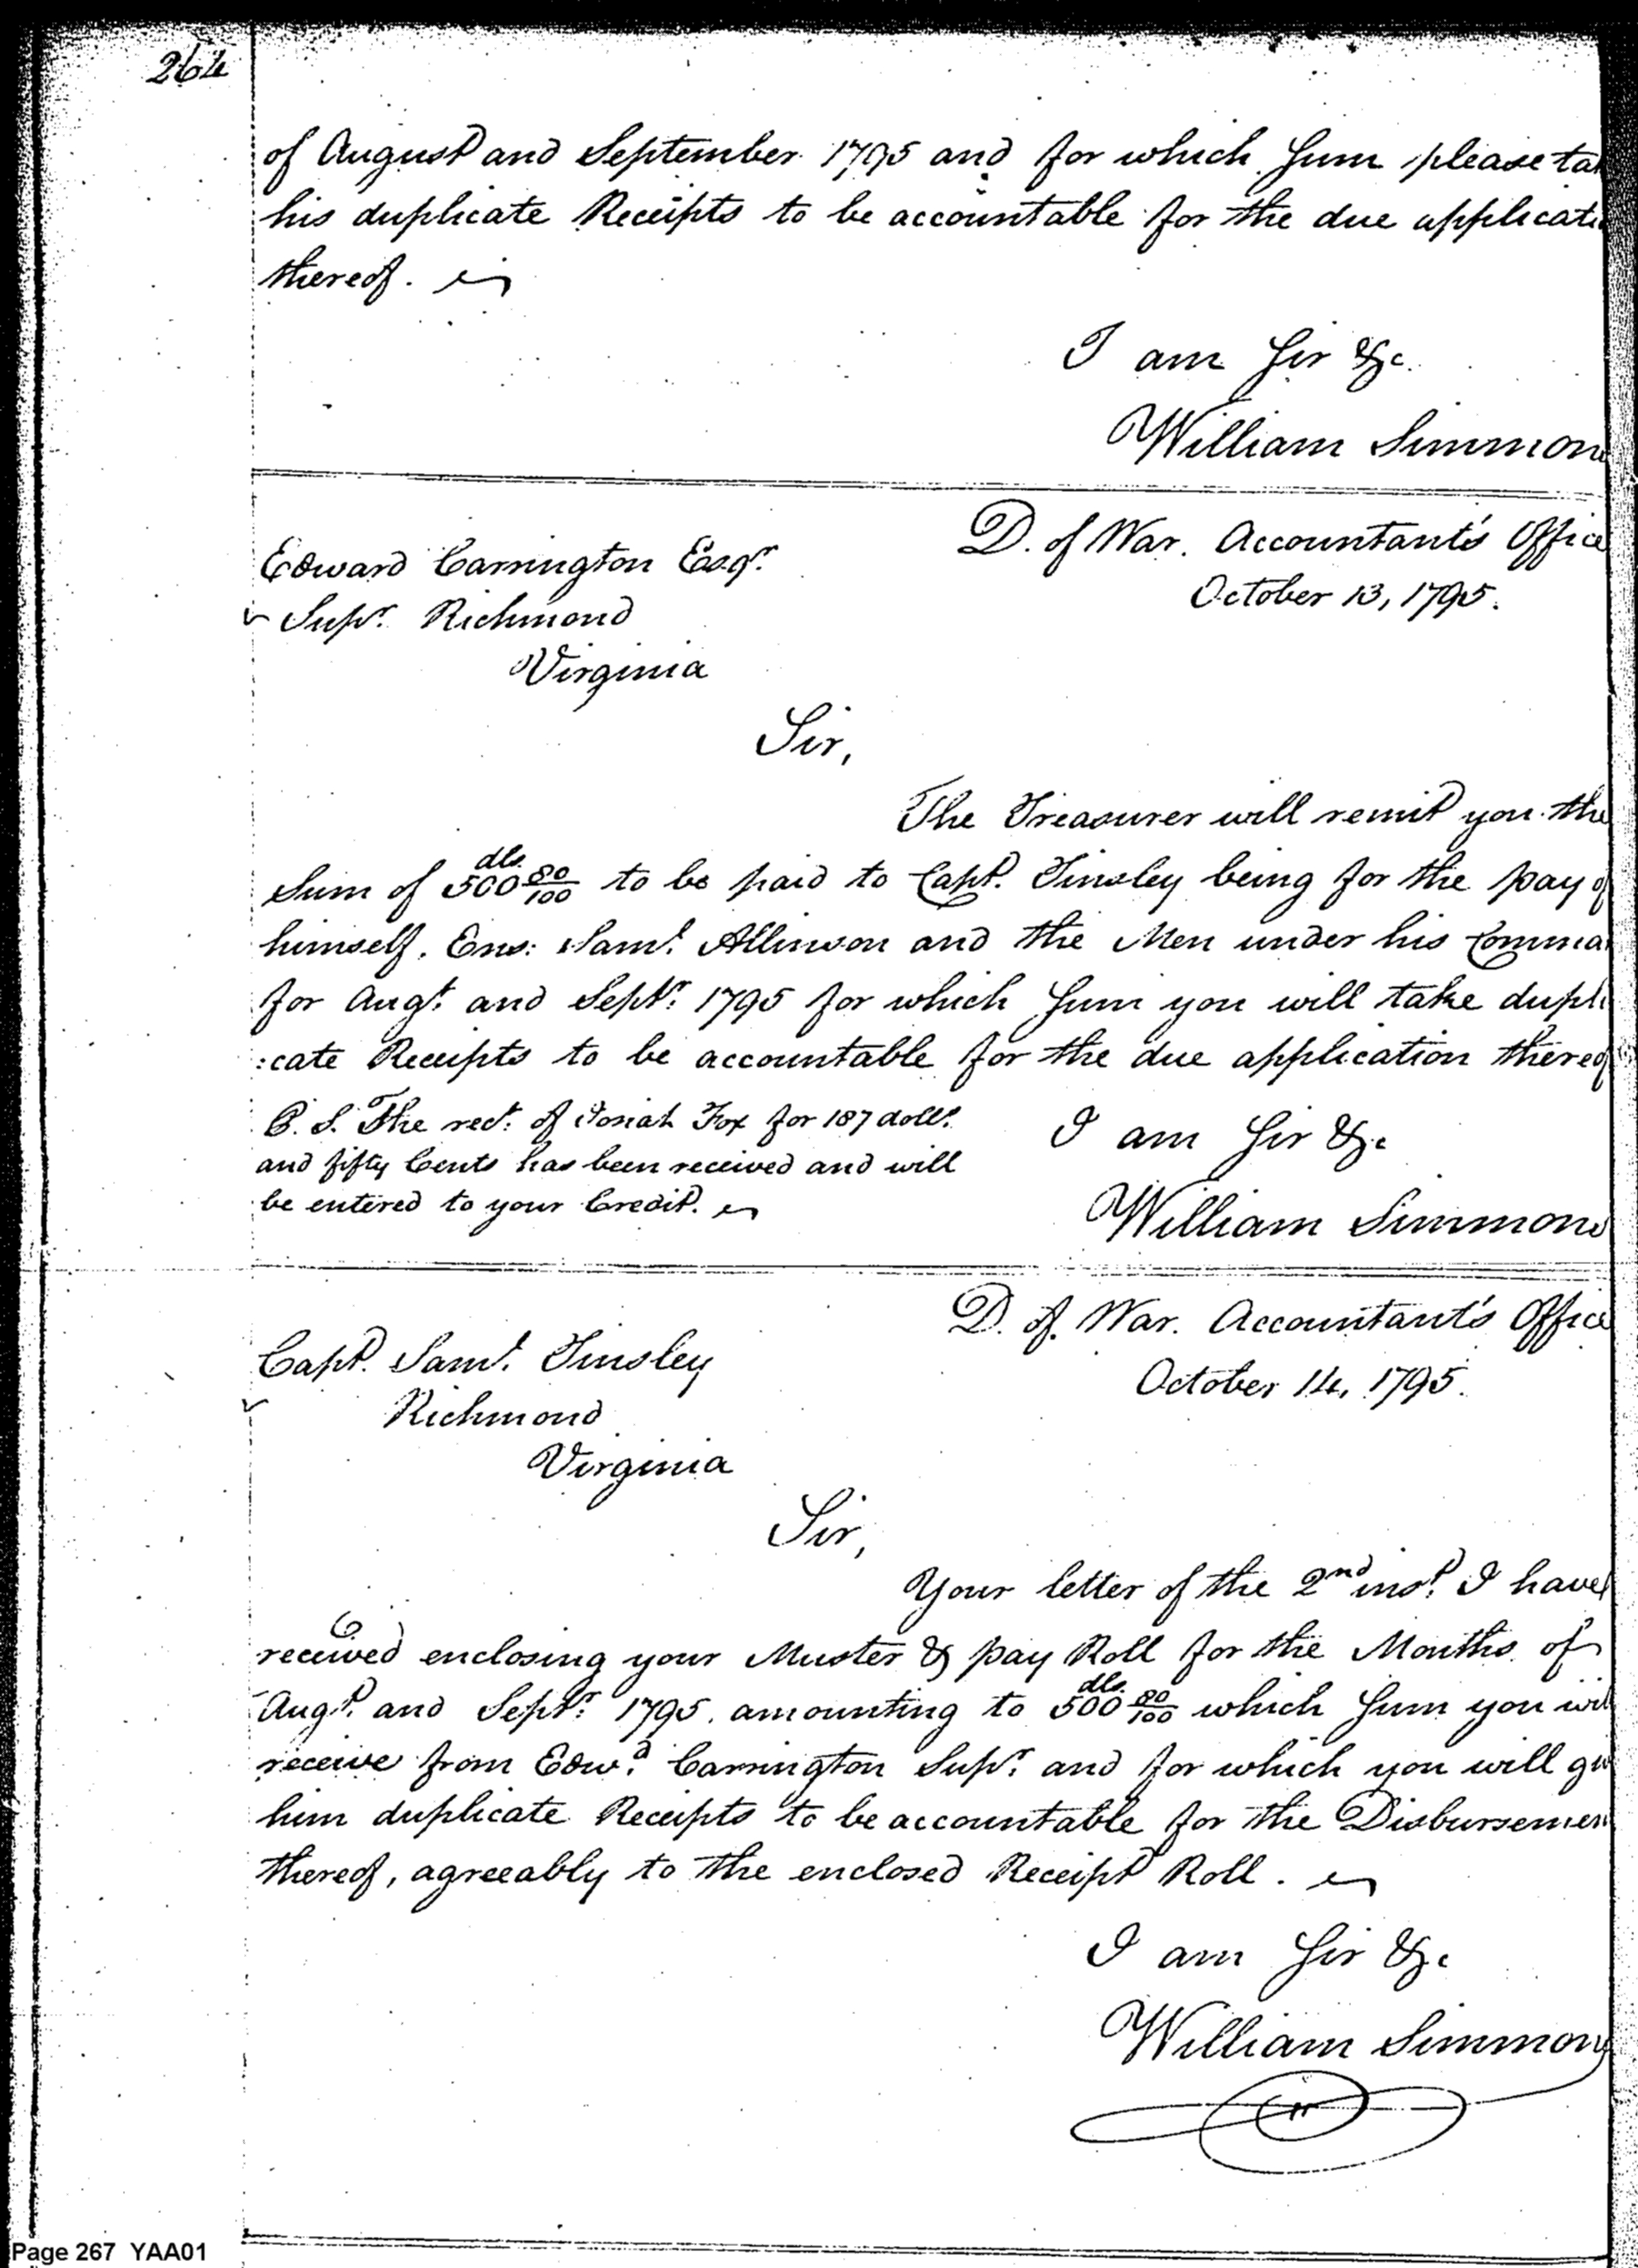 264
of August and September 1795 and for which Sum please ta
his duplicate Receipts to be accountable for the due applicati
thereof.
I am Sir &c.
William Simmons
D. of War. Accountant's Office
October 13, 1795.
Edward Carrington Esqr.
Supr. Richmond
Virginia
Sir,
The Treasurer will remit you the
Sum of 500 80/100 dls. to be paid to Capt. Tinsley being for the pay of
himself. Ens: Saml. Allinson and the Men under his Comma
for Augt. and Septr. 1795 for which Sum you will take dupli
:cate Receipts to be accountable for the due application thereof
P. S. The rect. of Josiah Fox for 187 dolls.
and fifty Cents has been received and will
be entered to your Credit.
I am Sir &c
William Simmons
D. of. War. Accountant's Office
October 14, 1795.
Capt. Saml. Tinsley
Richmond
Virginia
Sir,
Your letter of the 2nd inst. I have
received enclosing your Muster & pay Roll for the Months of
Augt. and Septr. 1795. amounting to 500 80/100 dls. which Sum you will
receive from Edwd. Carrington Supr. and for which you will gi
him duplicate Receipts to be accountable for the Disbursemen
thereof, agreeably to the enclosed Receipt Roll.
I am Sir &c
William Simmons
Page 267 YAA01